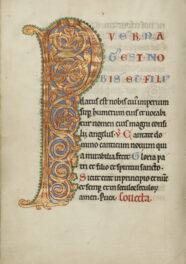 VER NA
T EST NO
BIS ET FILI
us datus est nobis cui imperium
sup humerum eius et vocabi
tur nomen eius magni consi
lii angelus. V. Cantate do
mino canticum novum qui
a mirabilia fecit. Gloria pa
tri et filio et spiritui sancto.
Sicut erat in principio et nunc
et semp et in secula seculorum
amen. Puer. collecta.